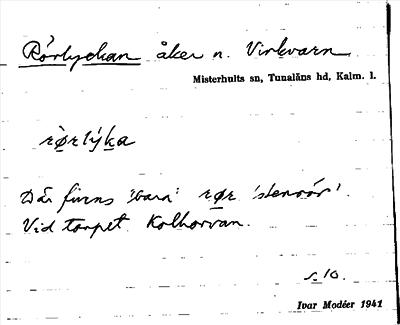 Rörlyckan åker n. Virkvarn
Misterhults sn, Tunaläns hd, Kalm. l.
rö̀rlýka
Där finns 'bara' rør 'stenrör'.
Vid torpet Kolhorvan.
s. 10.
Ivar Modéer 1941